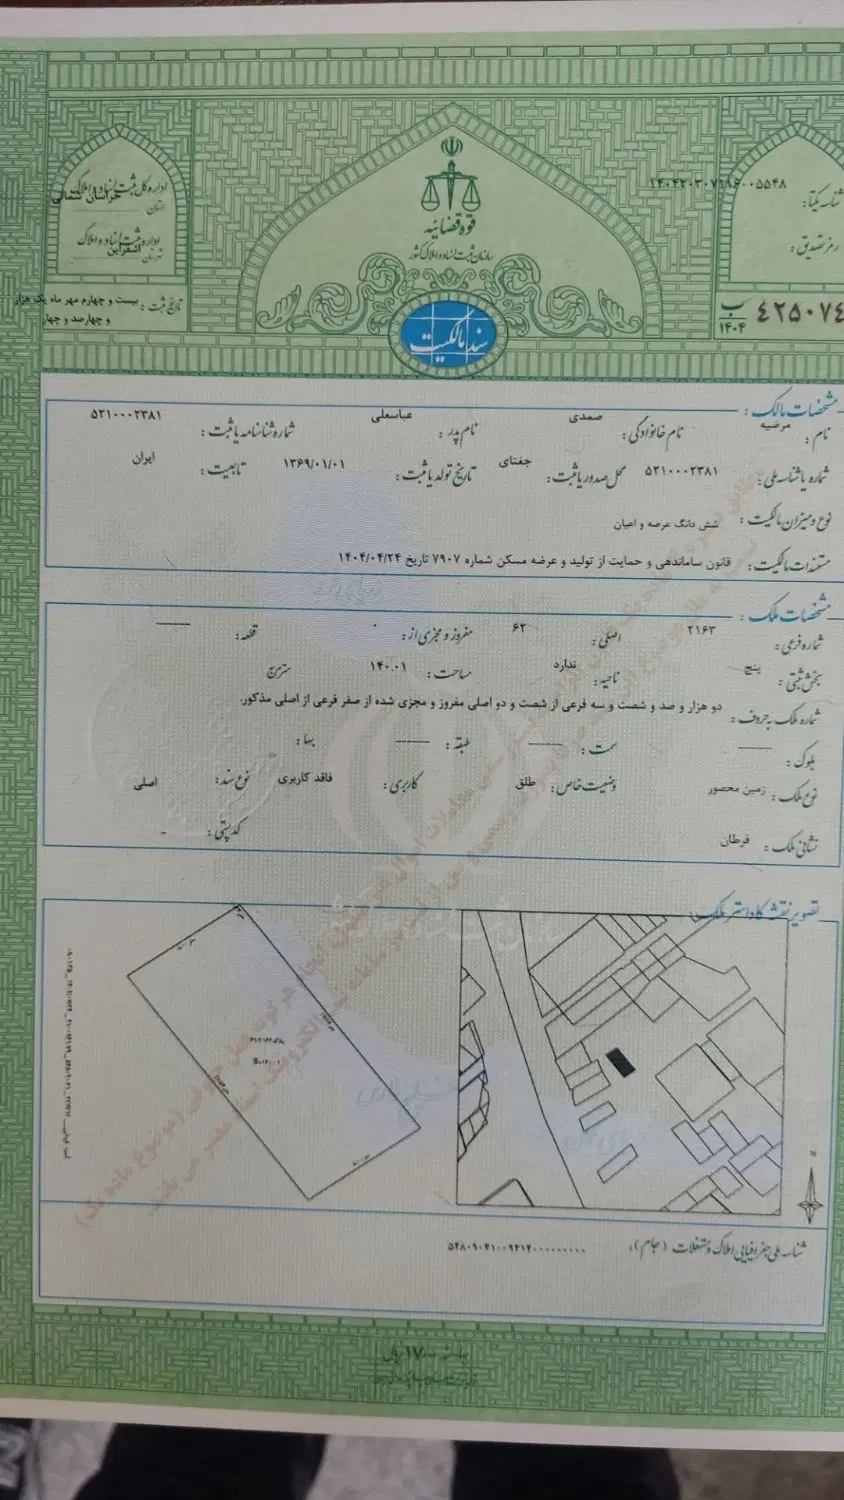 قوه قضائیه
سازمان ثبت اسناد و املاک کشور
سند مالکیت
اداره کل ثبت اسناد و املاک
استان خراسان شمالی
اداره ثبت اسناد و املاک
شهرستان اسفراین
تاریخ ثبت : بیست و چهارم مهر ماه یک هزار
و چهارصد و چهار
شناسه یکتا:
رمز تصدیق:
ب ۱۴۰۴ ۴۲۵۰۷۴
مشخصات مالک :
نام : مرضیه نام خانوادگی : صمدی نام پدر : عباسعلی شماره شناسنامه یا ثبت : ۵۲۱۰۰۰۲۳۸۱
شماره یا شناسه ملی : ۵۲۱۰۰۰۲۳۸۱ محل صدور یا ثبت : جغتای تاریخ تولد یا ثبت : ۱۳۶۹/۰۱/۰۱ تابعیت : ایران
نوع و میزان مالکیت : شش دانگ عرصه و اعیان
مستندات مالکیت : قانون ساماندهی و حمایت از تولید و عرضه مسکن شماره ۷۹۰۷ تاریخ ۱۴۰۴/۰۴/۲۴
مشخصات ملک :
شماره فرعی : ۲۱۶۳ اصلی : ۶۲ مفروز و مجزی از : ۰ قطعه :
بخش ثبتی : پنج ناحیه : ندارد مساحت : ۱۴۰.۰۱ مترمربع
شماره ملک به حروف : دو هزار و صد و شصت و سه فرعی از شصت و دو اصلی مفروز و مجزی شده از صفر فرعی از اصلی مذکور.
بلوک : سمت : طبقه : بها :
نوع ملک : زمین محصور وضعیت خاص : طلق کاربری : فاقد کاربری نوع سند : اصلی
نشانی ملک : قرطان کد پستی : -
تصویر نقشه کاداستر ملک :
N
شناسه ملی جغرافیایی املاک و مستغلات (جام) :